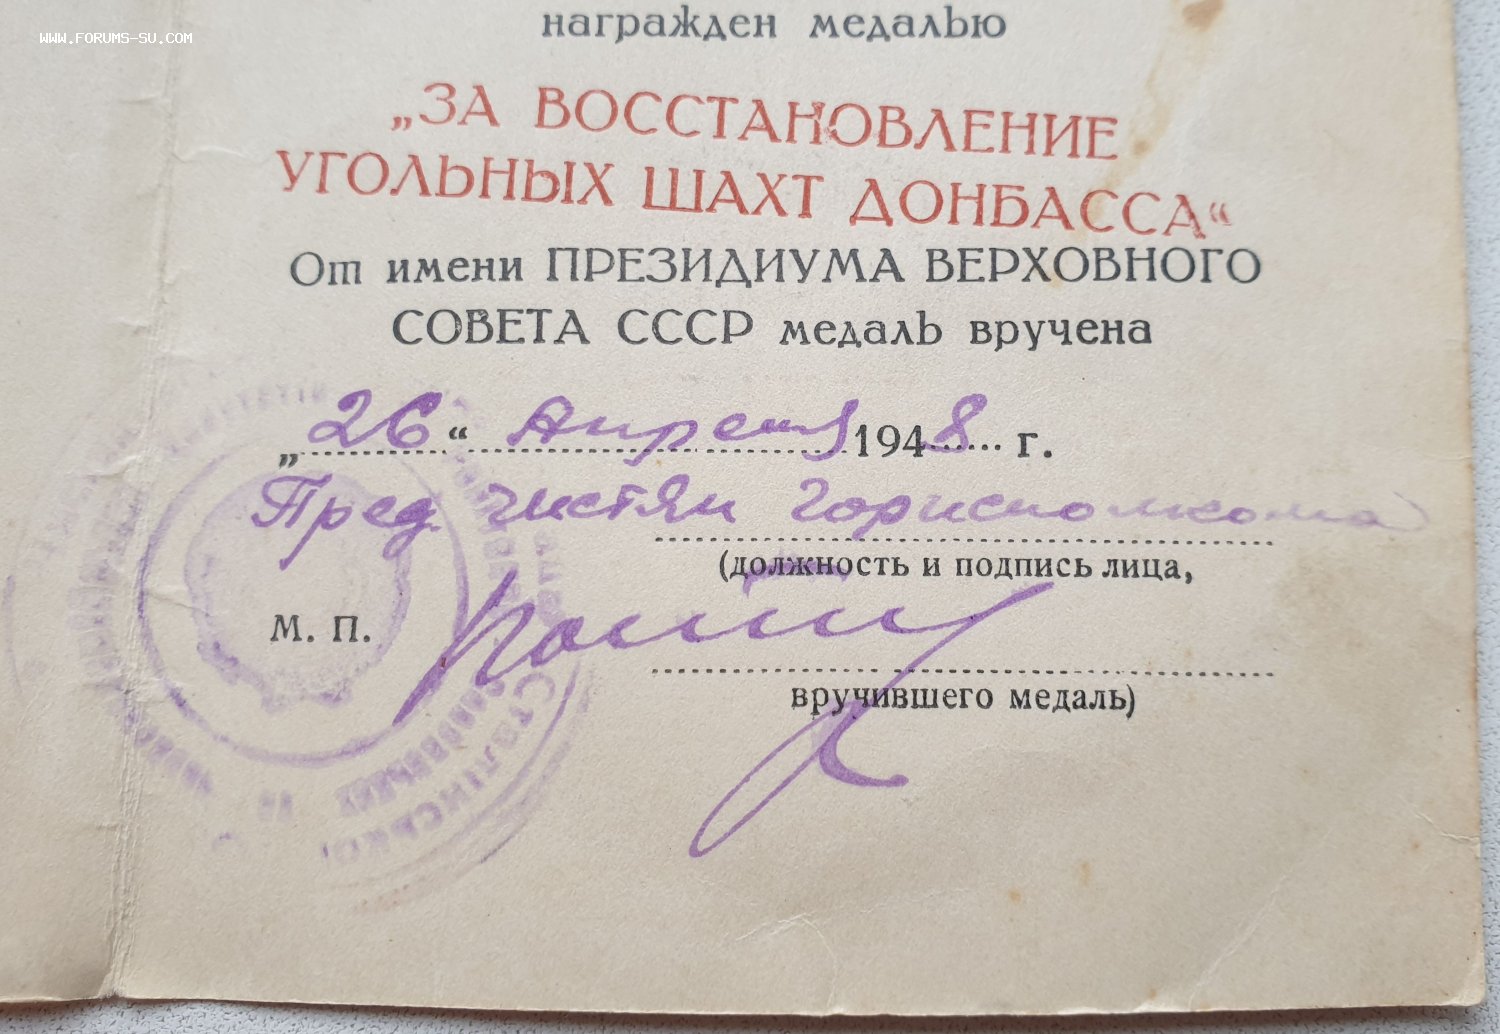 www.forums-su.com
награжден медалью
„ЗА ВОССТАНОВЛЕНИЕ
УГОЛЬНЫХ ШАХТ ДОНБАССА“
От имени ПРЕЗИДИУМА ВЕРХОВНОГО
СОВЕТА СССР медаль вручена
„26“ Апреля 1948 г.
Пред. чистян горисполкома
(должность и подпись лица,
М. П.
вручившего медаль)
Сталінської